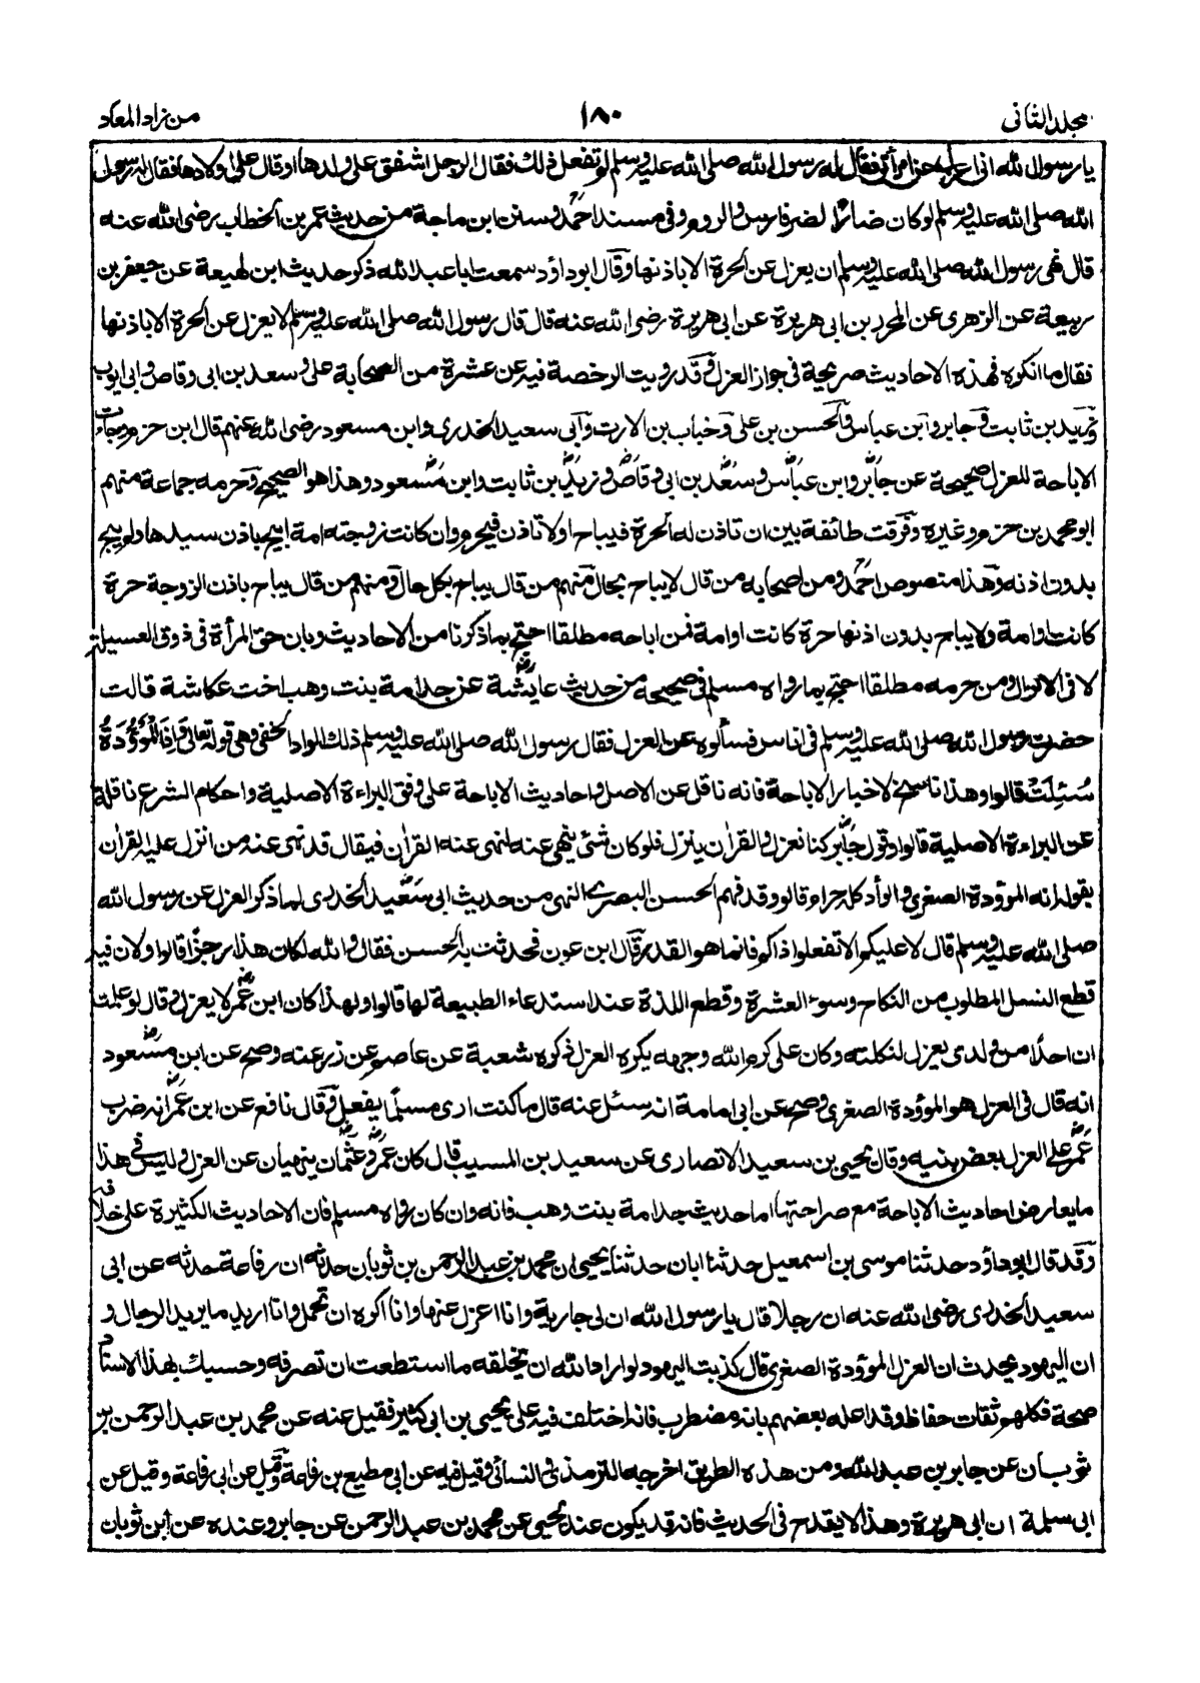 مجلد الثانى
١٨٠
من زاد المعاد
يا رسول الله انى اعزل عن امرأتى فقال له رسول الله صلى الله عليه وسلم لم تفعل ذلك فقال الرجل اشفق على ولدها او قال على اولادها فقال رسول
الله صلى الله عليه وسلم لو كان ضارًا لضر فارس والروم وفى مسند احمد وسنن ابن ماجة من حديث عمر بن الخطاب رضى الله عنه
قال نهى رسول الله صلى الله عليه وسلم ان يعزل عن الحرة الا باذنها وقال ابو داؤد سمعت ابا عبد الله ذكر حديث ابن لهيعة عن جعفر بن
ربيعة عن الزهرى عن المحرر بن ابى هريرة عن ابى هريرة رضى الله عنه قال قال رسول الله صلى الله عليه وسلم لا يعزل عن الحرة الا باذنها
فقال ما انكره فهذه الاحاديث صريحة فى جواز العزل وقد رويت الرخصة فيه عن عشرة من الصحابة على وسعد بن ابى وقاص وابى ايوب
وزيد بن ثابت وجابر وابن عباس والحسن بن على وخباب بن الارت وابى سعيد الخدرى وابن مسعود رضى الله عنهم قال ابن حزم وجاءت
الاباحة للعزل صحيحة عن جابر وابن عباس وسعد بن ابى وقاص وزيد بن ثابت وابن مسعود وهذا هو الصحيح وحرمه جماعة منهم
ابو محمد بن حزم وغيره وفرقت طائفة بين ان تاذن له الحرة فيباح او لا تاذن فيحرم وان كانت زوجته امة ابيح باذن سيدها ولم يبح
بدون اذنه وهذا منصوص احمد ومن اصحابه من قال لا يباح بحال ومنهم من قال يباح بكل حال ومنهم من قال يباح باذن الزوجة حرة
كانت او امة ولا يباح بدون اذنها حرة كانت او امة فمن اباحه مطلقا احتج بما ذكرنا من الاحاديث وبان حق المرأة فى ذوق العسيلة
لا فى الانزال ومن حرمه مطلقا احتج بما رواه مسلم فى صحيحه من حديث عايشة عن جدامة بنت وهب اخت عكاشة قالت
حضرت رسول الله صلى الله عليه وسلم فى اناس فسألوه عن العزل فقال رسول الله صلى الله عليه وسلم ذلك الواد الخفى وهى قوله تعالى وَاِذَا الْمَوْؤُدَةُ
سُئِلَتْ قالوا وهذا ناسخ لاخبار الاباحة فانه ناقل عن الاصل واحاديث الاباحة على وفق البراءة الاصلية واحكام الشرع ناقلة
عن البراءة الاصلية قالوا وقول جابر كنا نعزل والقرأن ينزل فلو كان شئ ينهى عنه لنهى عنه القرأن فيقال قد نهى عنه من انزل عليه القرأن
بقوله انه الموؤدة الصغرى والوأد كله حرام وقالوا وقد فهم الحسن البصرى النهى من حديث ابى سعيد الخدرى لما ذكر العزل عن رسول الله
صلى الله عليه وسلم قال لا عليكم الا تفعلوا ذاكم فانما هو القدر قال ابن عون فحدثت به الحسن فقال والله لكان هذا زجرًا قالوا ولان فيه
قطع النسل المطلوب من النكاح وسوء العشرة وقطع اللذة عند استدعاء الطبيعة لها قالوا ولهذا كان ابن عمر لا يعزل وقال لو علمت
ان احدًا من ولدى يعزل لنكلته وكان على كرم الله وجهه يكره العزل ذكره شعبة عن عاصم عن زر عنه وصح عن ابن مسعود
انه قال فى العزل هو الموؤدة الصغرى وصح عن ابى امامة انه سئل عنه قال ما كنت ارى مسلمًا يفعل وقال نافع عن ابن عمر انه ضرب
عمر على العزل بعض بنيه وقال يحيى بن سعيد الانصارى عن سعيد بن المسيب قال كان عمر وعثمان ينهيان عن العزل وليس فى هذا
ما يعارض احاديث الاباحة مع صراحتها اما حديث جدامة بنت وهب فانه وان كان رواه مسلم فان الاحاديث الكثيرة على خلافه
وقد قال ابو داؤد حدثنا موسى بن اسمعيل حدثنا ابان حدثنا يحيى ان محمد بن عبد الرحمن بن ثوبان حدثه ان رفاعة حدثه عن ابى
سعيد الخدرى رضى الله عنه ان رجلا قال يا رسول الله ان لى جارية وانا اعزل عنها وانا اكره ان تحمل وانا اريد ما يريد الرجال و
ان اليهود يحدث ان العزل الموؤدة الصغرى قال كذبت اليهود لو اراد الله ان يخلقه ما استطعت ان تصرفه وحسبك بهذا الاسناد
صحة فكلهم ثقات حفاظ وقد اعله بعضهم بانه مضطرب فانه اختلف فيه على يحيى بن ابى كثير فقيل عنه عن محمد بن عبد الرحمن بن
ثوبان عن جابر بن عبد الله ومن هذه الطريق اخرجه الترمذى والنسائى وقيل فيه عن ابى مطيع بن رفاعة وقيل عن ابى رفاعة وقيل عن
ابى سلمة ان ابى هريرة وهذا لا يقدح فى الحديث فانه قد يكون عند يحيى عن محمد بن عبد الرحمن عن جابر وعنده عن ابن ثوبان